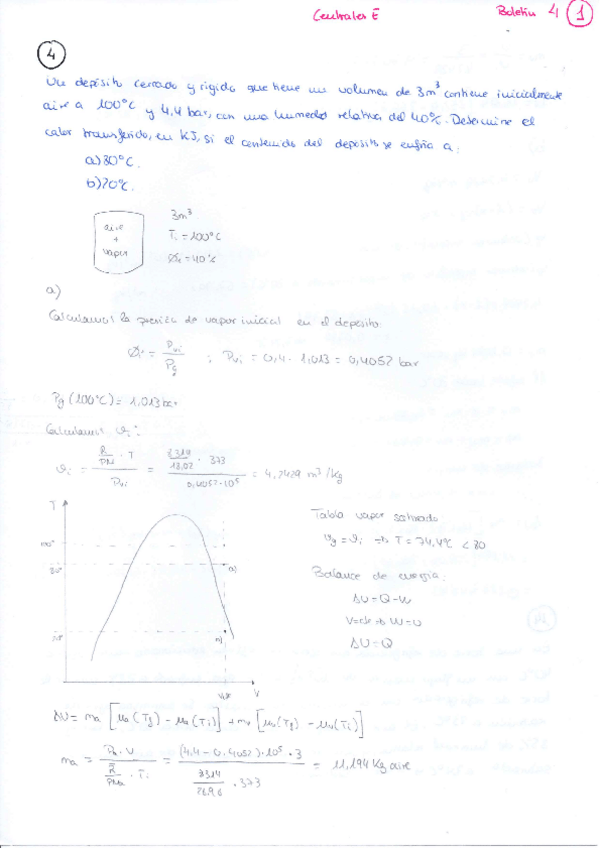 Centrales E Boletín 4 1
4
Un depósito cerrado y rígido que tiene un volumen de 3m³ contiene inicialmente
aire a 100°C y 4,4 bar, con una humedad relativa del 40%. Determine el
calor transferido, en KJ, si el contenido del depósito se enfría a:
a) 80°C.
b) 20°C.
aire + vapor
3m³
Ti = 100°C
Ør = 40%
a)
Calculamos la presión de vapor inicial en el depósito
Ør = Pvi / Pg ; Pvi = 0,4 · 1,013 = 0,4052 bar
Pg (100°C) = 1,013 bar
Calculamos vi:
vi = (R/PM · T) / Pvi = (8314/18,02 · 373) / (0,4052·10⁵) = 4,2429 m³/kg
T
100°
80° a)
20°
V
Tabla vapor saturado
vg = vi => T = 74,4°C < 80
Balance de energía:
ΔU = Q - W
V = cte => W = 0
ΔU = Q
ΔU = ma [ua(Tf) - ua(Ti)] + mv [uv(Tf) - uv(Ti)]
ma = (Pa · V) / (R/PMa · Ti) = ((4,4 - 0,4052)·10⁵ · 3) / (8314/28,96 · 373) = 11,194 Kg aire